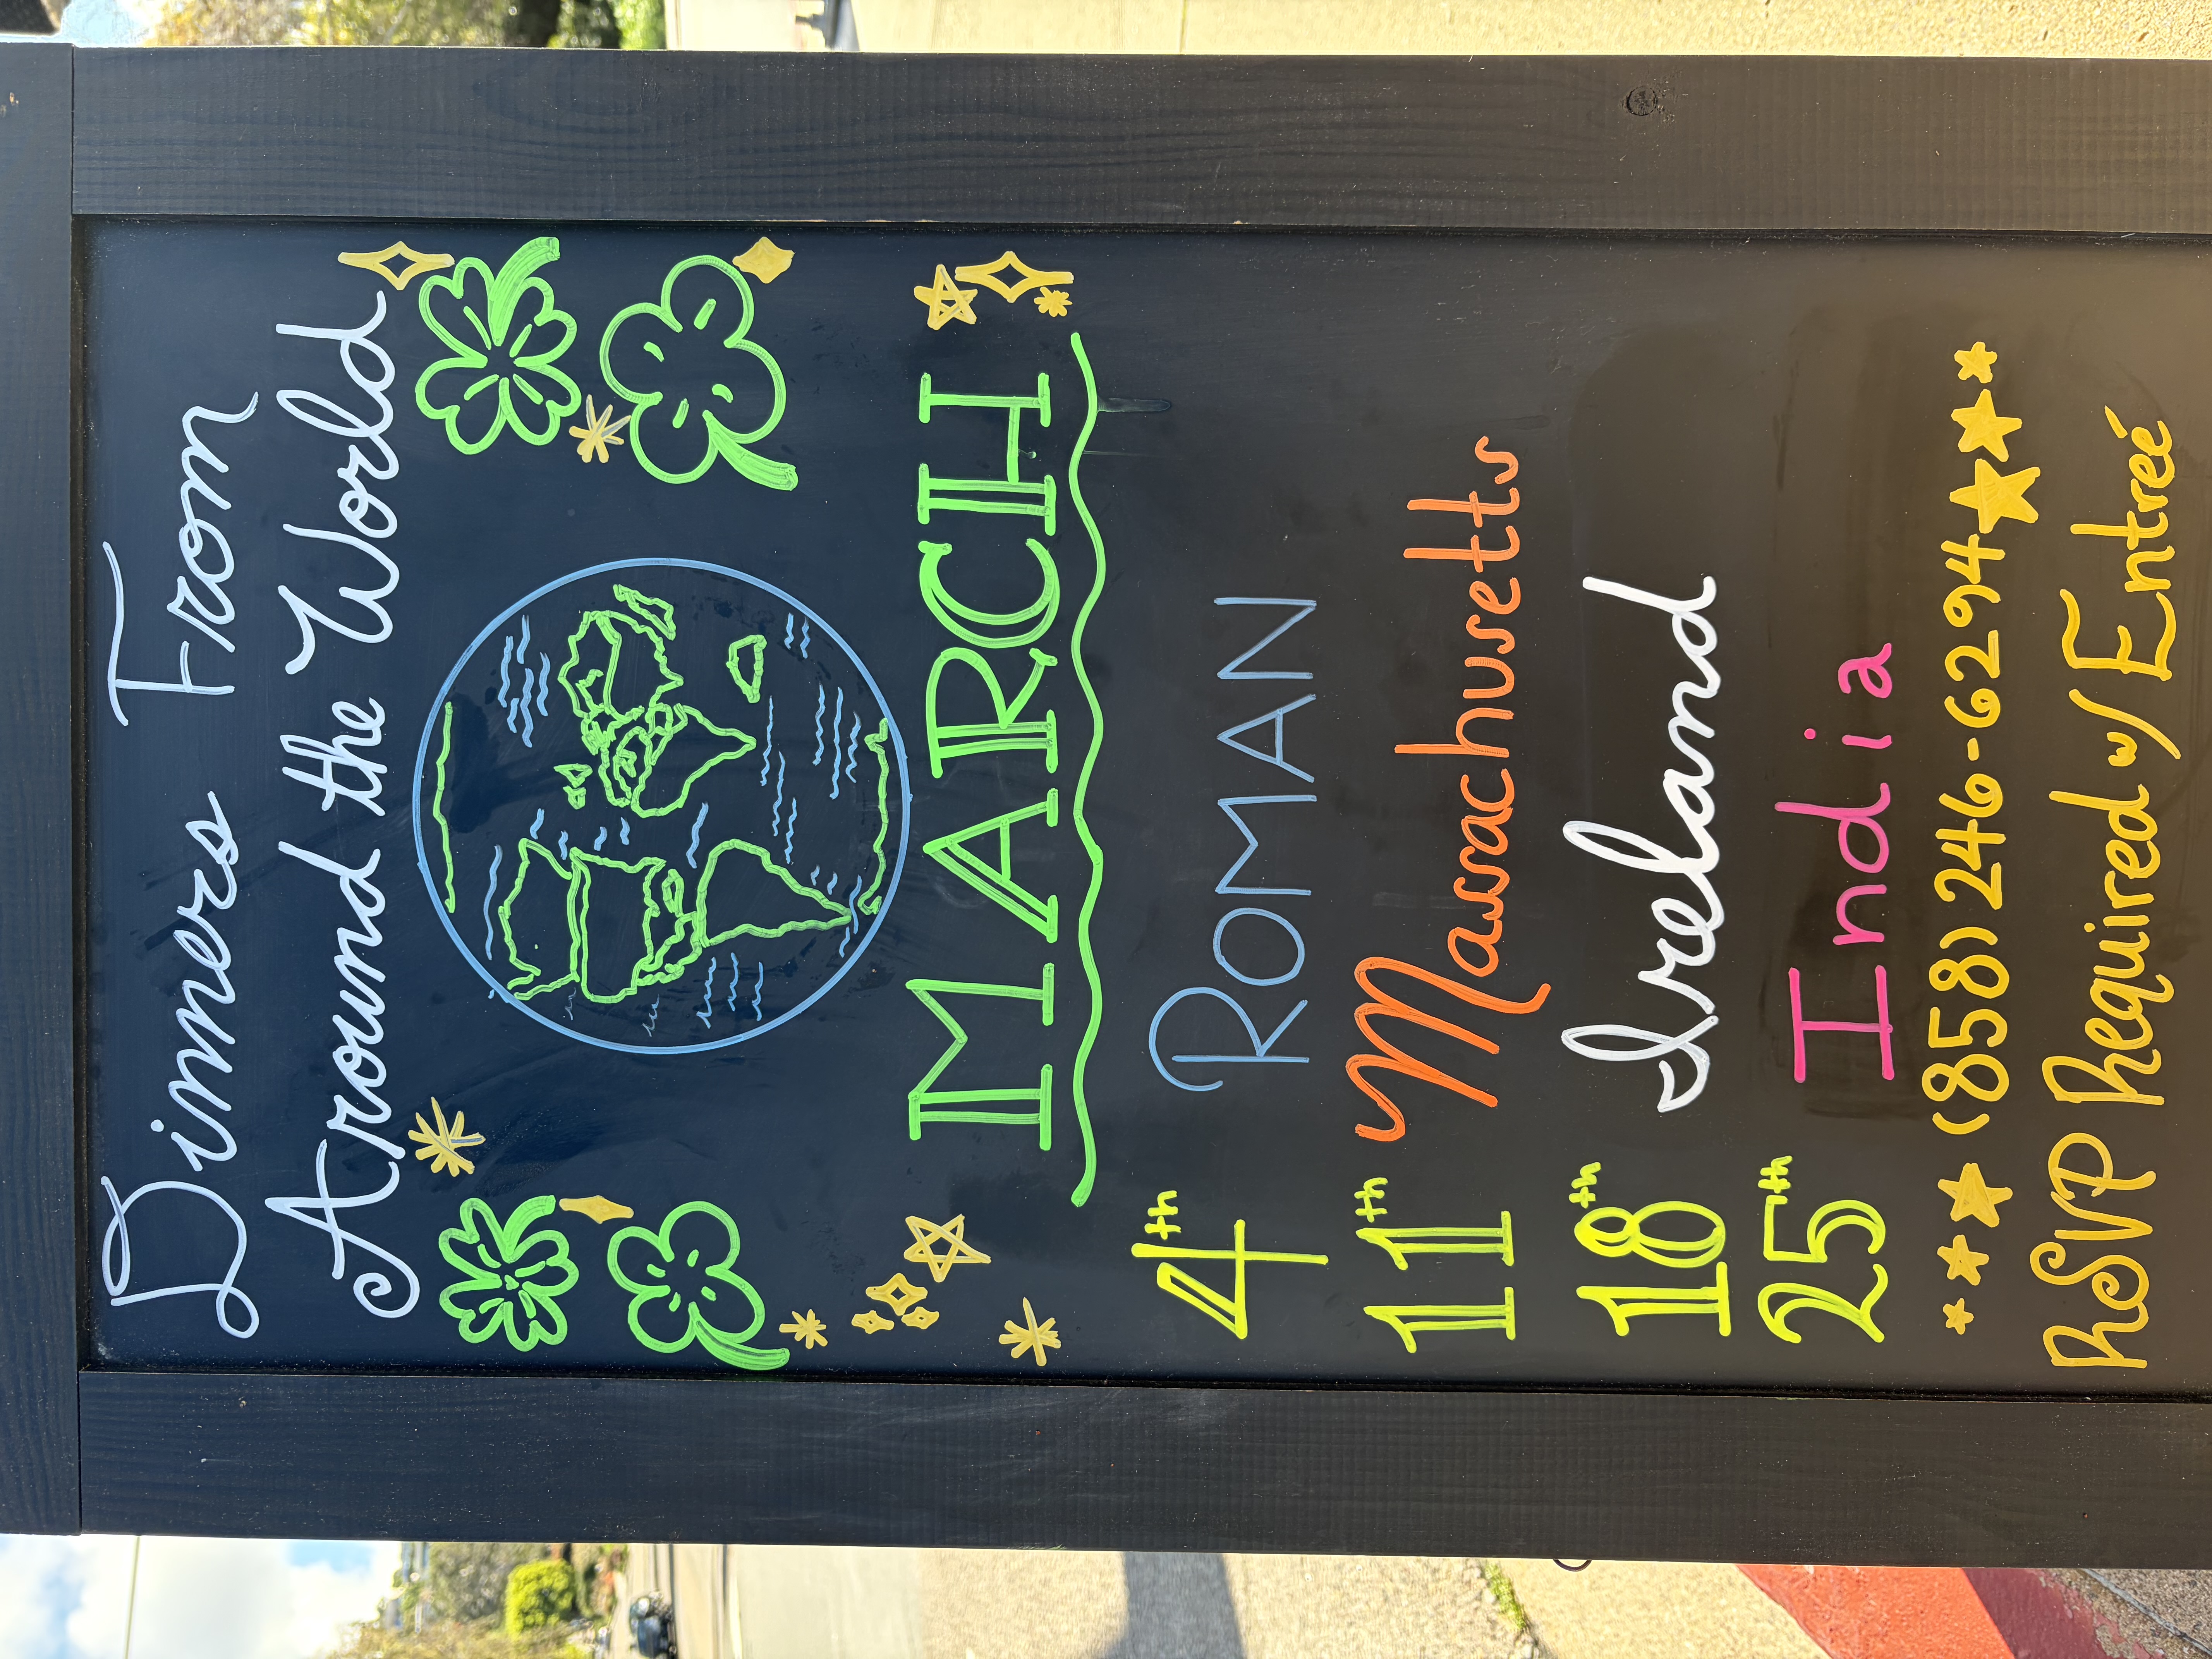 Dinners From
Around the World
MARCH
4th ROMAN
11th Massachusetts
18th Ireland
25th India
(858) 246-6294
RSVP Required w/ Entreé